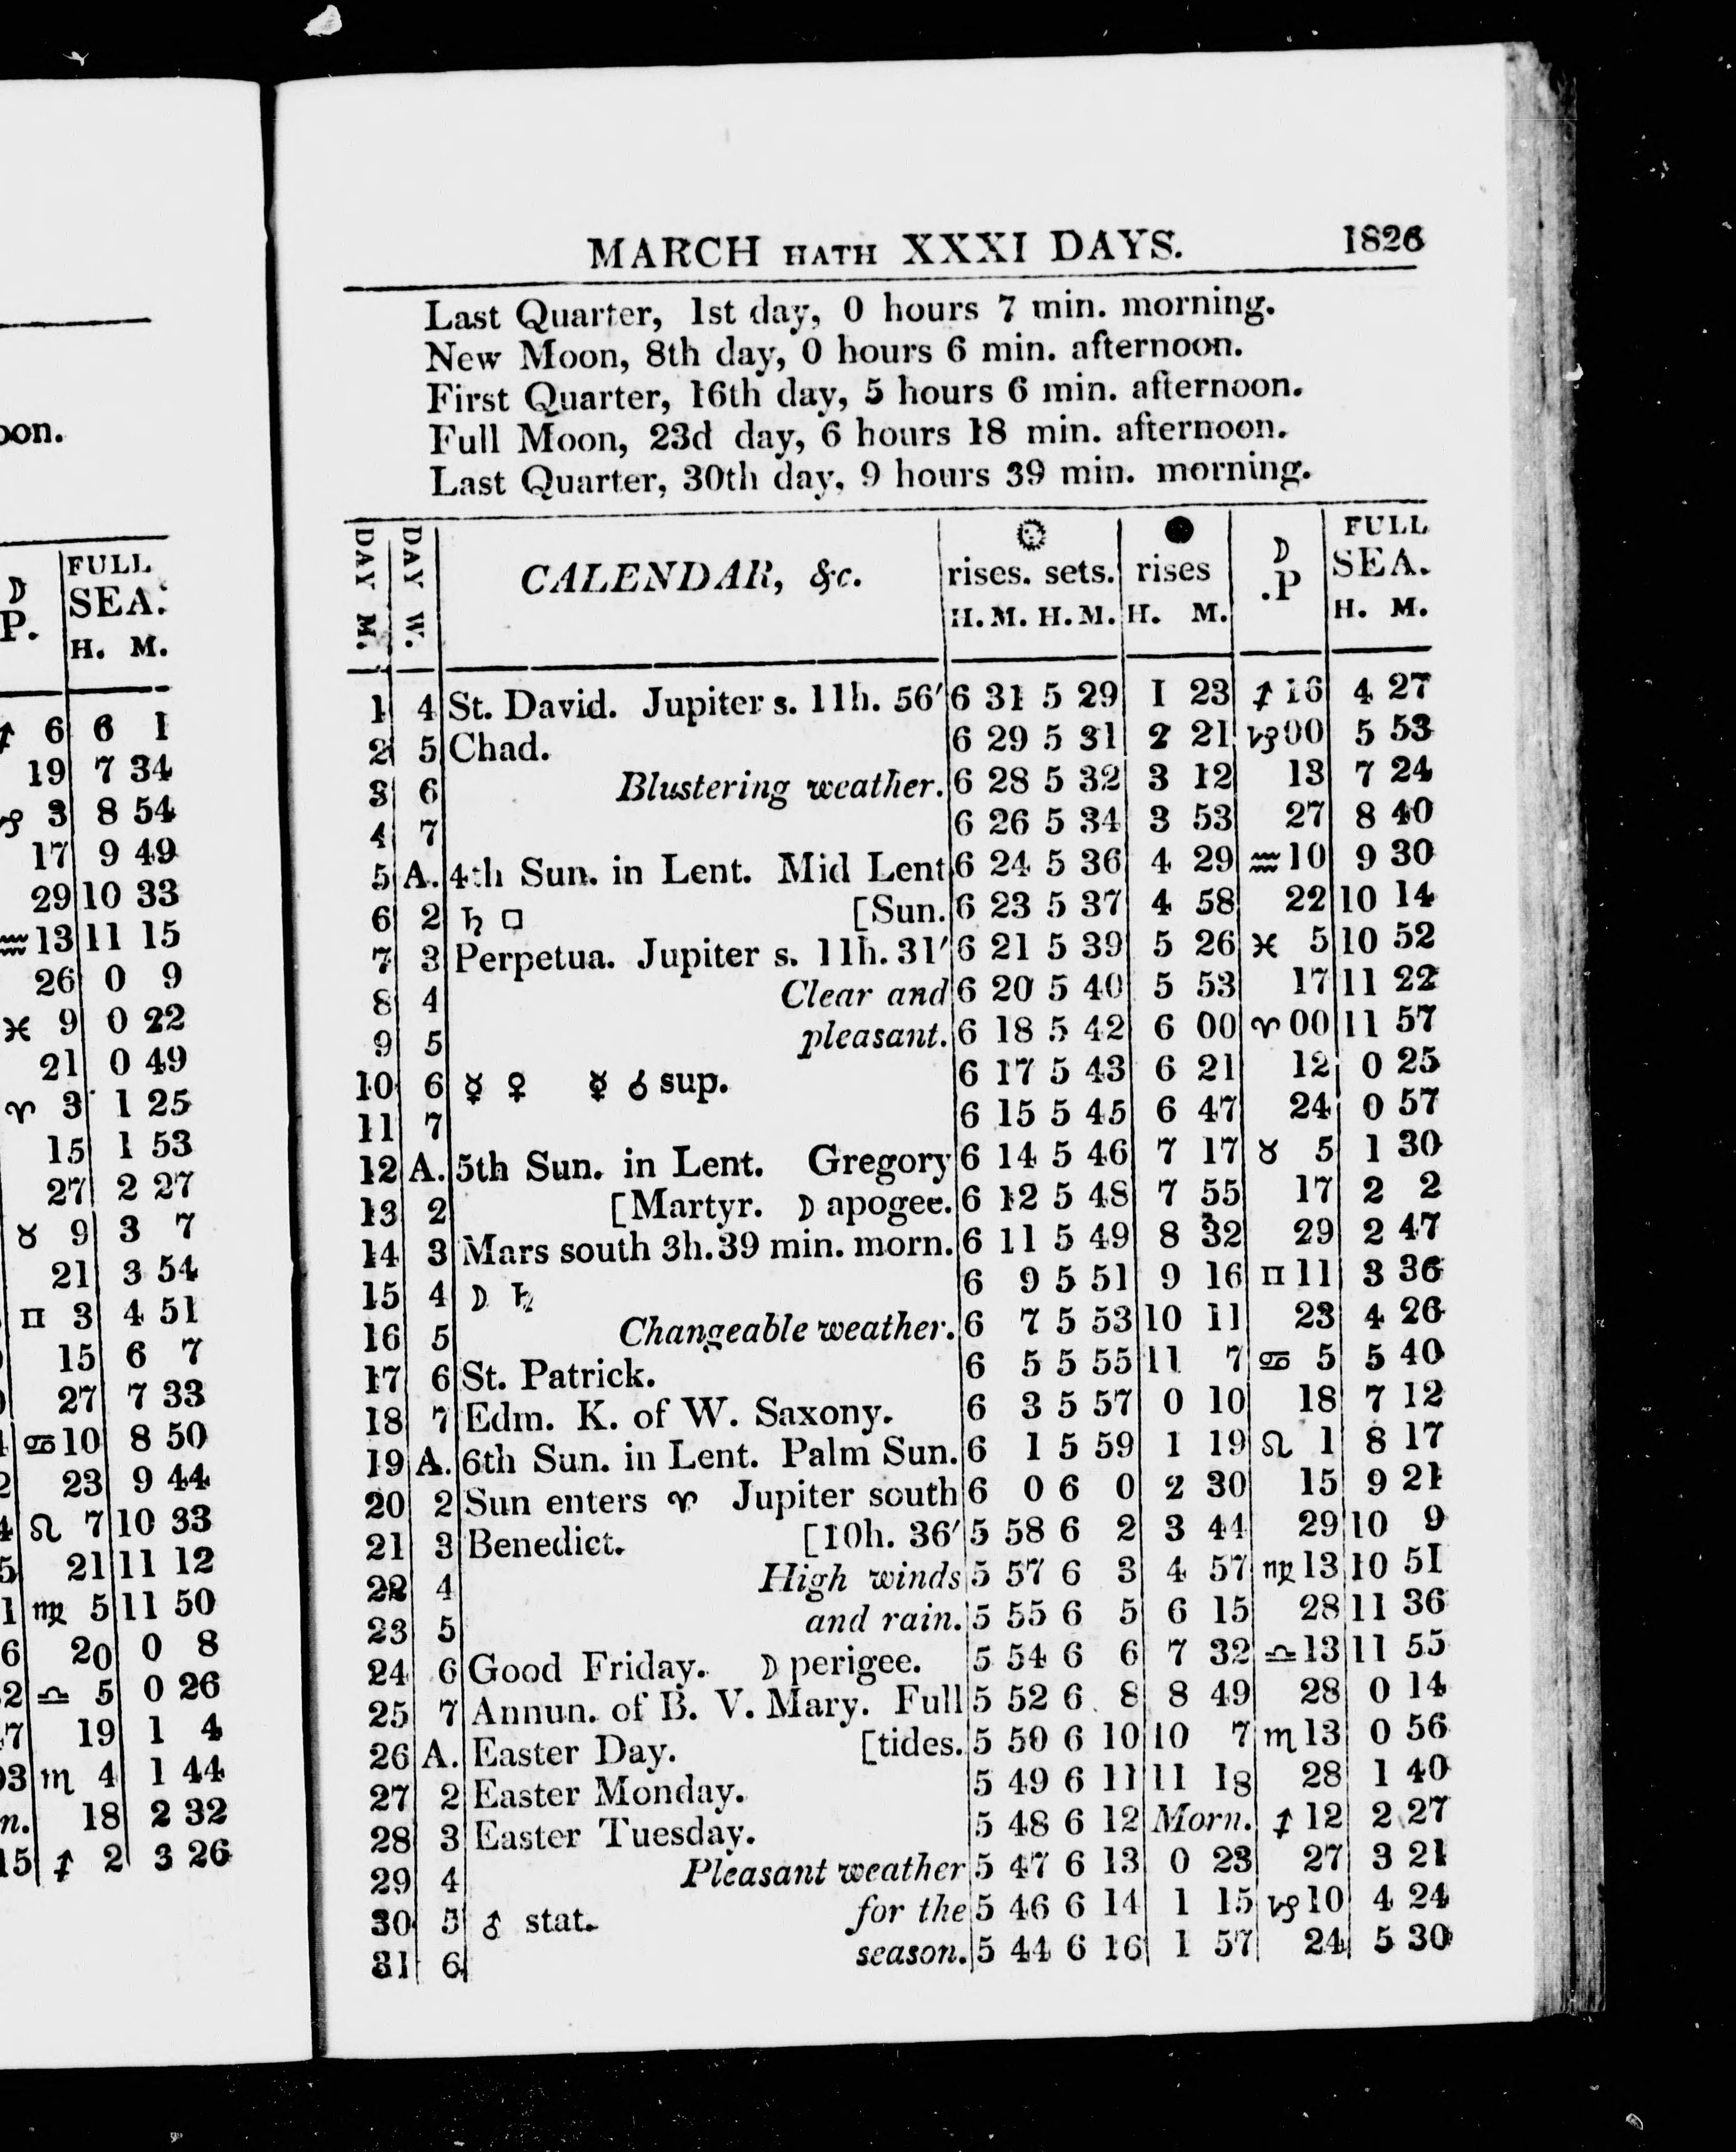 oon.
☽ FULL
P. SEA.
H. M.
♐ 6 6 1
19 7 34
♑ 3 8 54
17 9 49
29 10 33
♒ 13 11 15
26 0 9
♓ 9 0 22
21 0 49
♈ 3 1 25
15 1 53
27 2 27
♉ 9 3 7
21 3 54
♊ 3 4 51
15 6 7
27 7 33
♋ 10 8 50
2 23 9 44
4 ♌ 7 10 33
5 21 11 12
1 ♍ 5 11 50
6 20 0 8
2 ♎ 5 0 26
7 19 1 4
3 ♏ 4 1 44
n. 18 2 32
15 ♐ 2 3 26
MARCH HATH XXXI DAYS. 1826
Last Quarter, 1st day, 0 hours 7 min. morning.
New Moon, 8th day, 0 hours 6 min. afternoon.
First Quarter, 16th day, 5 hours 6 min. afternoon.
Full Moon, 23d day, 6 hours 18 min. afternoon.
Last Quarter, 30th day, 9 hours 39 min. morning.
DAY M. DAY W. CALENDAR, &c. ☉ rises. sets. ● rises ☽ .P FULL SEA.
H. M. H. M. H. M. H. M.
1 4 St. David. Jupiter s. 11h. 56′ 6 31 5 29 1 23 ♐ 16 4 27
2 5 Chad. 6 29 5 31 2 21 ♑ 00 5 53
3 6 Blustering weather. 6 28 5 32 3 12 13 7 24
4 7 6 26 5 34 3 53 27 8 40
5 A. 4th Sun. in Lent. Mid Lent 6 24 5 36 4 29 ♒ 10 9 30
6 2 ♄ □ [Sun. 6 23 5 37 4 58 22 10 14
7 3 Perpetua. Jupiter s. 11h. 31′ 6 21 5 39 5 26 ♓ 5 10 52
8 4 Clear and 6 20 5 40 5 53 17 11 22
9 5 pleasant. 6 18 5 42 6 00 ♈ 00 11 57
10 6 ☿ ♀ ☿ ☌ sup. 6 17 5 43 6 21 12 0 25
11 7 6 15 5 45 6 47 24 0 57
12 A. 5th Sun. in Lent. Gregory 6 14 5 46 7 17 ♉ 5 1 30
13 2 [Martyr. ☽ apogee. 6 12 5 48 7 55 17 2 2
14 3 Mars south 3h. 39 min. morn. 6 11 5 49 8 32 29 2 47
15 4 ☽ ♄ 6 9 5 51 9 16 ♊ 11 3 36
16 5 Changeable weather. 6 7 5 53 10 11 23 4 26
17 6 St. Patrick. 6 5 5 55 11 7 ♋ 5 5 40
18 7 Edm. K. of W. Saxony. 6 3 5 57 0 10 18 7 12
19 A. 6th Sun. in Lent. Palm Sun. 6 1 5 59 1 19 ♌ 1 8 17
20 2 Sun enters ♈ Jupiter south 6 0 6 0 2 30 15 9 21
21 3 Benedict. [10h. 36′ 5 58 6 2 3 44 29 10 9
22 4 High winds 5 57 6 3 4 57 ♍ 13 10 51
23 5 and rain. 5 55 6 5 6 15 28 11 36
24 6 Good Friday. ☽ perigee. 5 54 6 6 7 32 ♎ 13 11 55
25 7 Annun. of B. V. Mary. Full 5 52 6 8 8 49 28 0 14
26 A. Easter Day. [tides. 5 50 6 10 10 7 ♏ 13 0 56
27 2 Easter Monday. 5 49 6 11 11 18 28 1 40
28 3 Easter Tuesday. 5 48 6 12 Morn. ♐ 12 2 27
29 4 Pleasant weather 5 47 6 13 0 23 27 3 21
30 5 ♂ stat. for the 5 46 6 14 1 15 ♑ 10 4 24
31 6 season. 5 44 6 16 1 57 24 5 30